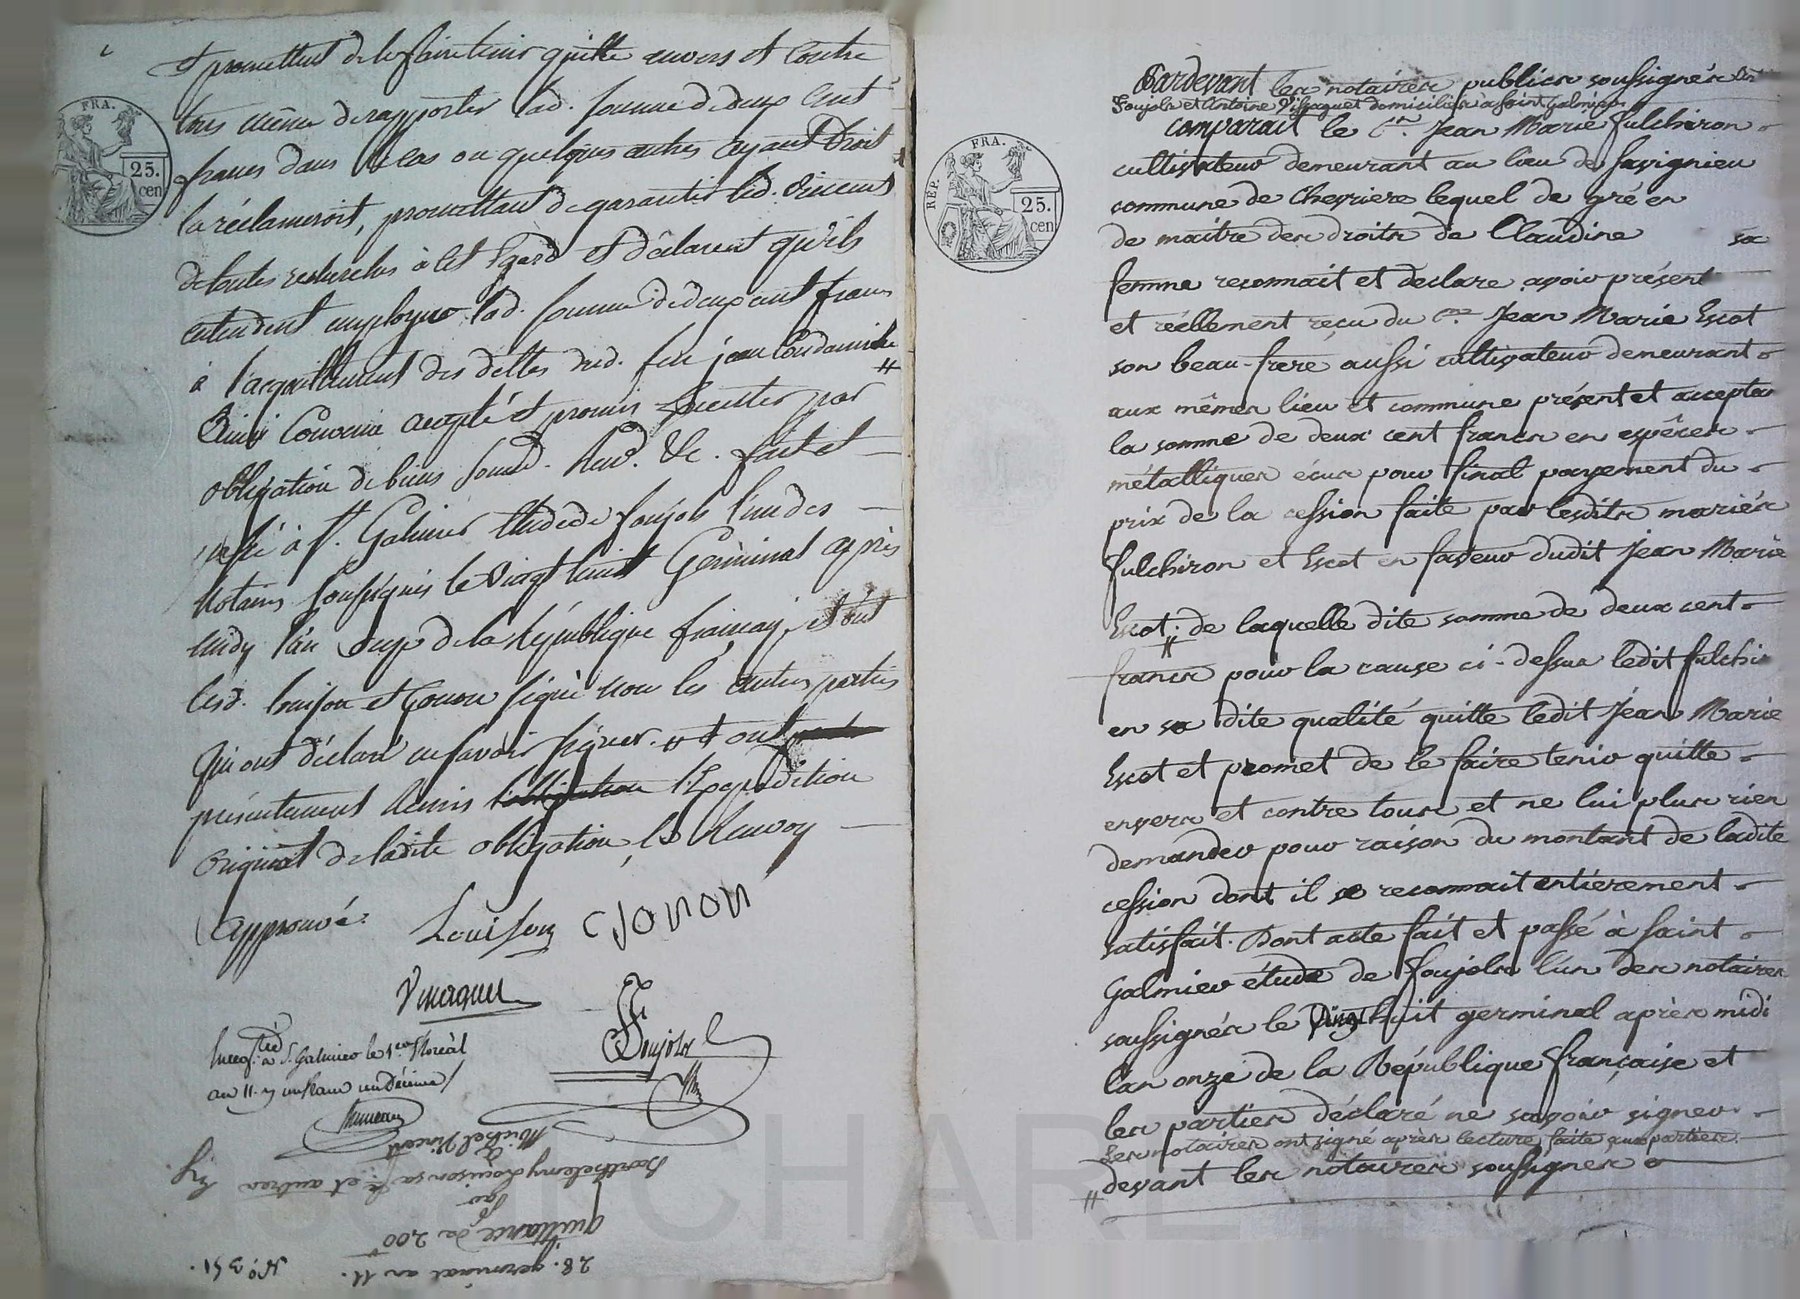 et promettent de le faire tenir quitte envers et contre
tous même de rapporter lad. somme de deux cent
francs dans le cas ou quelques autres ayant Droit
la réclameroit, promettant de garantir led. vincent
de toutes recherches à cet Egard et déclarent qu'ils
entendent employer lad. somme de deux cent francs
à l'acquittement des dettes dud. feu jean
Ainsi Convenu accepté et promis par
obligation de biens soumd. Rend. &c. fait et
passé à St. Galmier étude de foujols l'un des
Notaires soussignés le vingt huit Germinal après
midy l'an onze de la République française, et ont
lesd. Louison et Gonon signé non les autres parties
Qui ont déclaré ne savoir signer. # et ont
présentement Remis l'obligation l'Expedition
Originat de ladite obligation, le Renvoy
approuvé.
Louison GONON
Foujols
à St. Galmier le 1er floréal
an 11. un franc un décime
28. germinal an 11. N.° 351.
quittance de 200 f
par
Barthelemy Louison sa fe. et autres
à
Michel Vincent
FRA.
25.
cen
RÉP. FRA.
25.
cen
Pardevant les notaires publics soussignés
Foujols et Antoine domiciliés à Saint galmier
comparait le Cen. Jean Marie Fulchiron
cultivateur demeurant au lieu de Savignieu
commune de Chevriere lequel de gré en
de maître des droits de Claudine sa
femme reconnait et declare avoir présent
et réellement reçu du Cen. Jean Marie Escot
son beau-frere aussi cultivateur demeurant
aux mêmes lieu et commune présent et accepta
la somme de deux cent francs en espèces
métalliques écus pour final payement du
prix de la cession faite par lesdits mariés
Fulchiron et Escot en faveur dudit Jean Marie
Escot; de laquelle dite somme de deux cent
francs pour la cause ci-dessus ledit fulchi
en sa dite qualité quitte ledit Jean Marie
Escot et promet de le faire tenir quitte
envers et contre tous et ne lui plus rien
demander pour raison du montant de ladite
cession dont il se reconnait entièrement
satisfait. Dont acte fait et passé à Saint
Galmier étude de Foujols l'un des notaires
soussignés le Vingt huit germinal après midi
l'an onze de la République française et
les parties déclaré ne savoir signer
Les notaires ont signé après lecture faite aux parties.
# devant les notaires soussignés